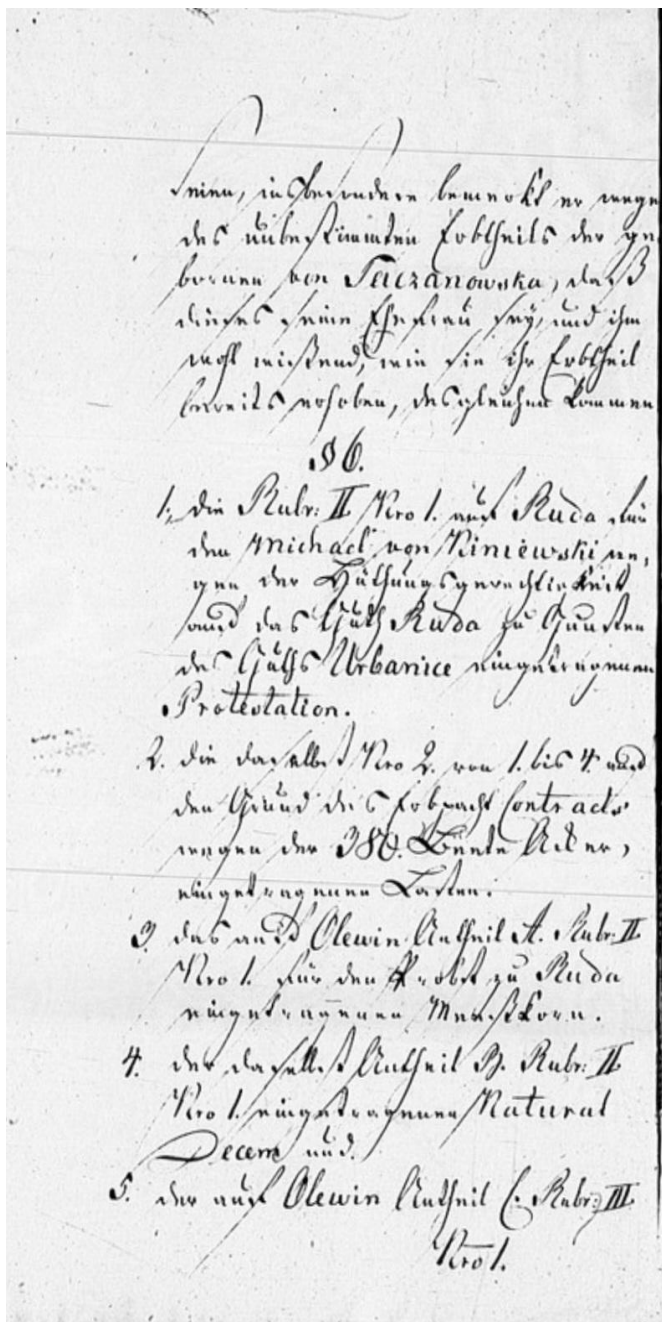 seien, insbesondere bemerkt er wege
des unbestimmten Erbtheils der ge
bornen von Taczanowska, daß
dieses seine Ehefrau sey, und ihm
wohl wißend, wie sie ihr Erbtheil
bereits erhoben, desgleichen kommen
§ 6.
1. die Rubr: II Nro 1. auf Ruda für
den Michael von Kiniewski we,
gen der Hüthungsgerechtigkeit
auf das Guth Ruda zu Gunsten
des Guths Urbanice eingetragenen
Protestation.
2. die daselbst Nro 2. von 1. bis 4. auf
den Grund des Erbpacht Contracts
wegen der 380. Beete Acker,
eingetragenen Lasten.
3. das auf Olewin Antheil A. Rubr: II
Nro 1. für den Probst zu Ruda
eingetragenen Messkorn.
4. der daselbst Antheil B. Rubr: II
Nro 1. eingetragenen Natural
Decem und
5. der auf Olewin Antheil C. Rubr: III
Nro 1.